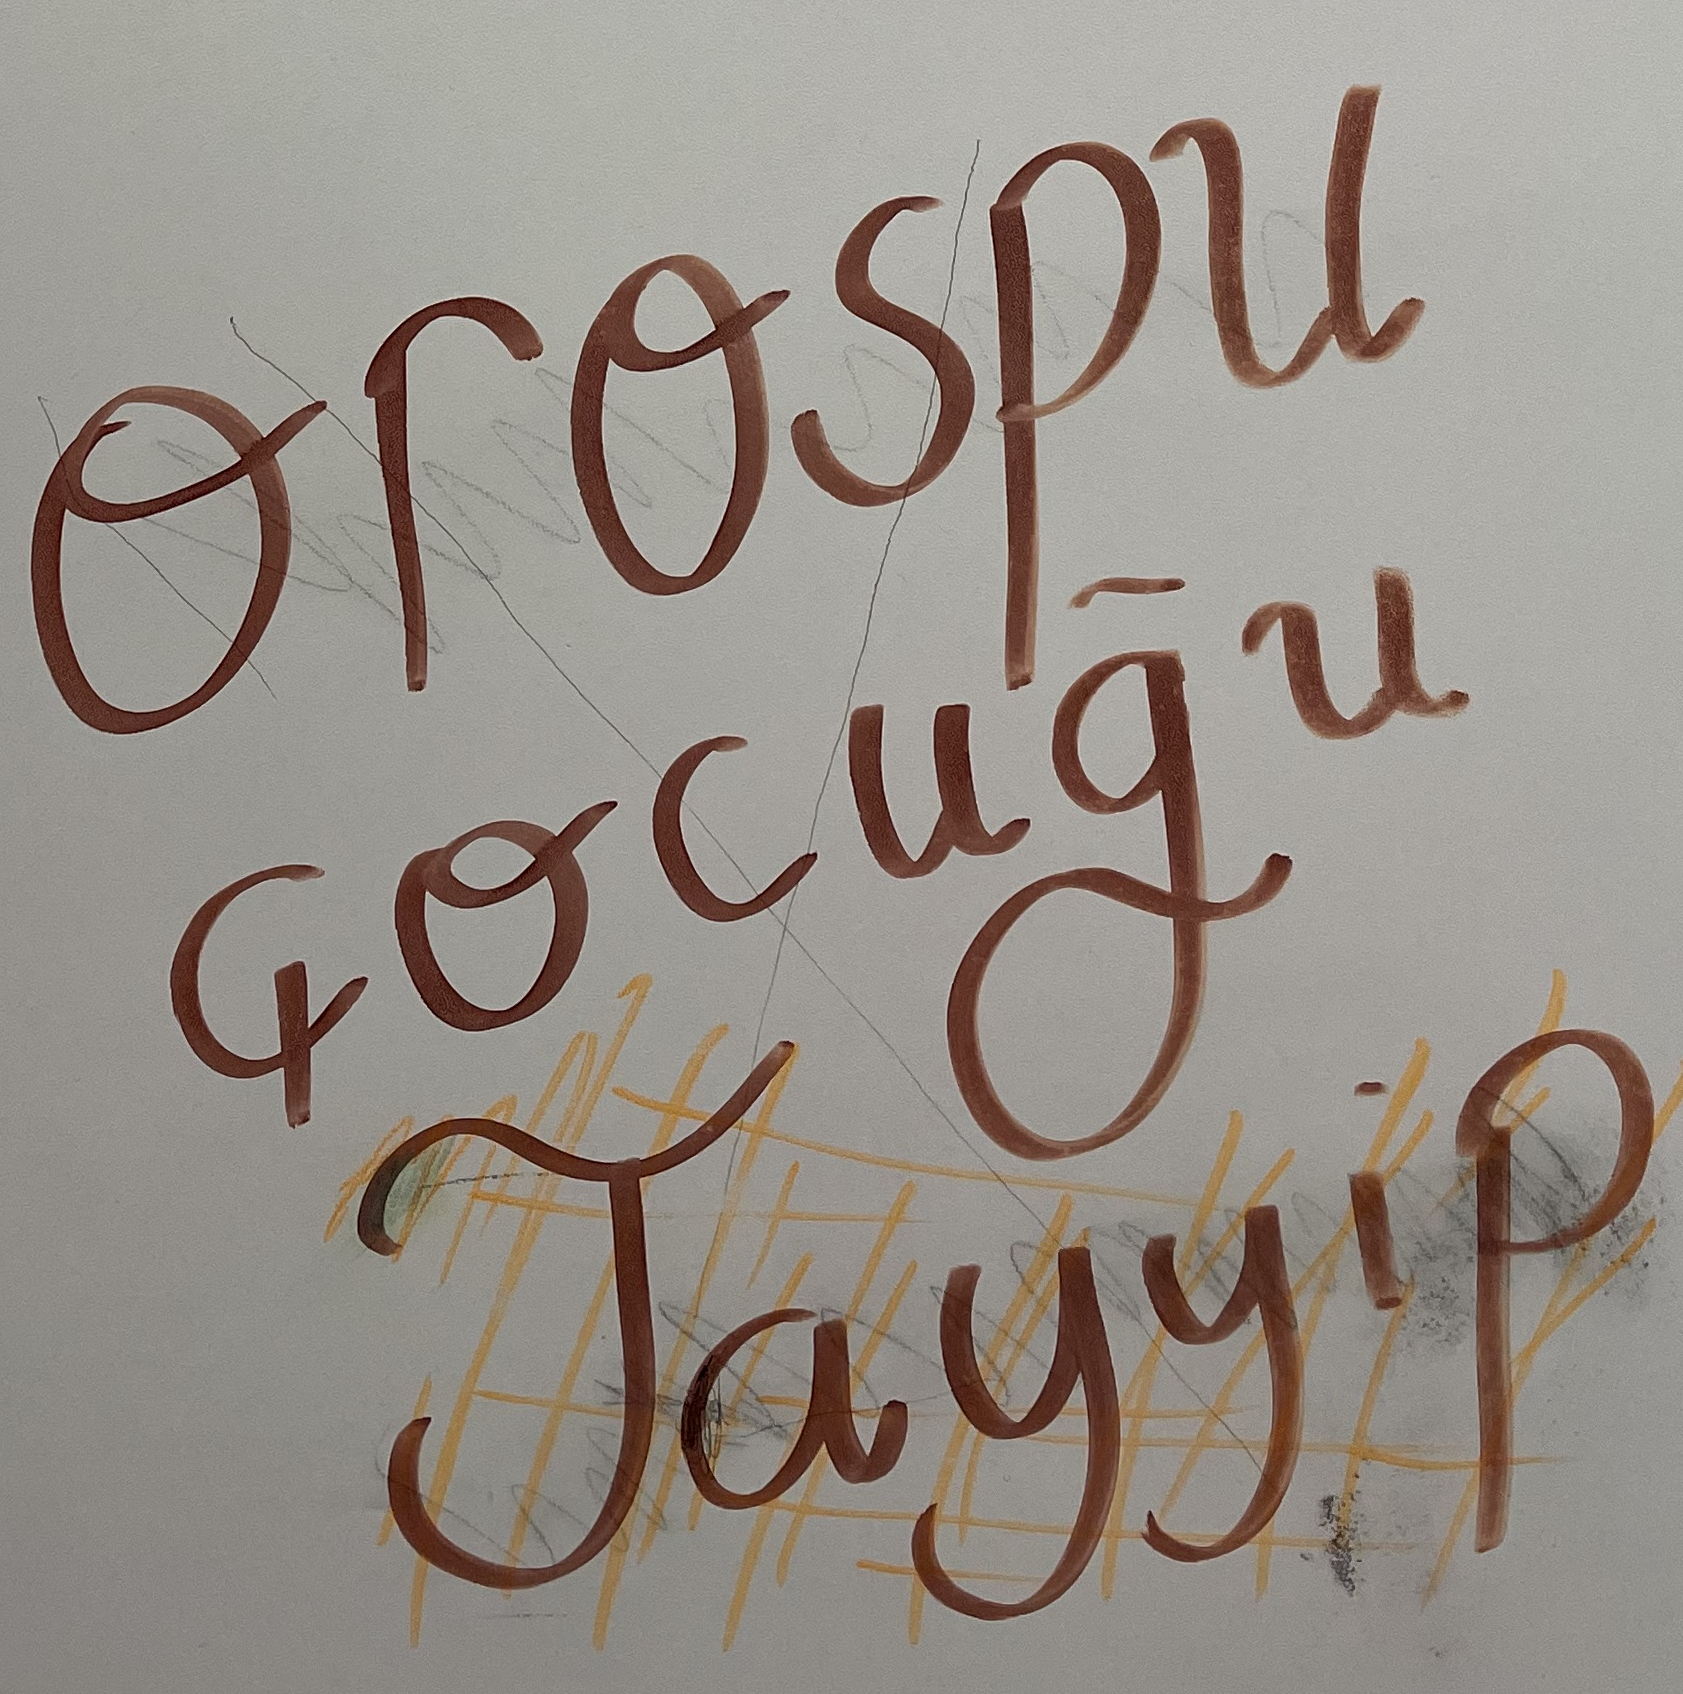 orospu
çocuğu
Tayyip